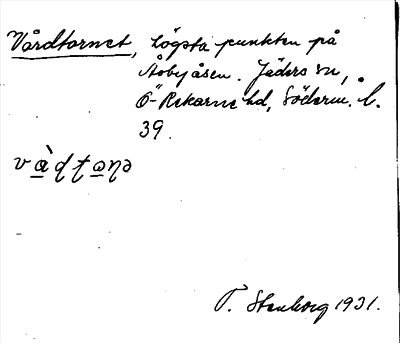 Vårdtornet, högsta punkten på
Åsbyåsen. Jäders sn,
Ö-Rekarne hd, Söderm. l.
39.
T. Stenborg 1931.